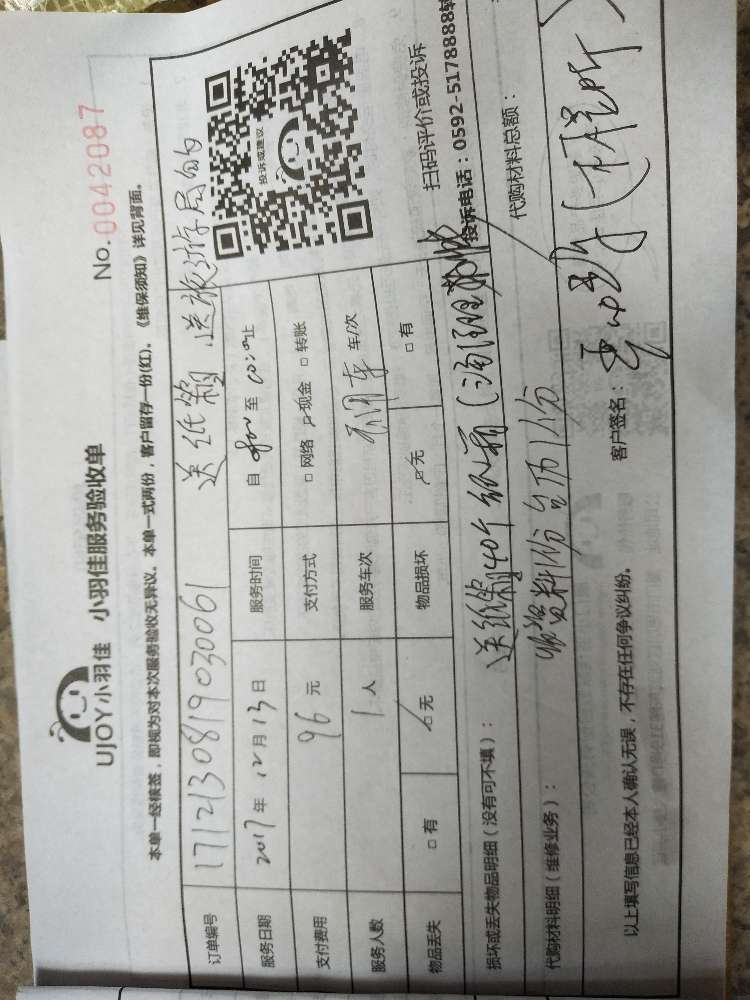 UJOY小羽佳 小羽佳服务验收单
No. 0042087
本单一经核签，即视为对本次服务验收无异议。本单一式两份，客户留存一份(红)。《维保须知》详见背面。
订单编号 1712130819030061 送纸箱 送旅游局的
服务日期 2017年12月13日 服务时间 自 至 止
支付费用 96元 支付方式 □网络 现金 □转账
服务人数 1人 服务车次 车/次
物品丢失 □有 无 物品损坏 无 □有
投诉或建议
扫码评价或投诉
投诉电话：0592-5178888转
损坏或丢失物品明细（没有可不填）： 送纸箱40个
代购材料明细（维修业务）： 资料1份 台历1份
代购材料总额：
以上填写信息已经本人确认无误，不存在任何争议纠纷。 客户签名：